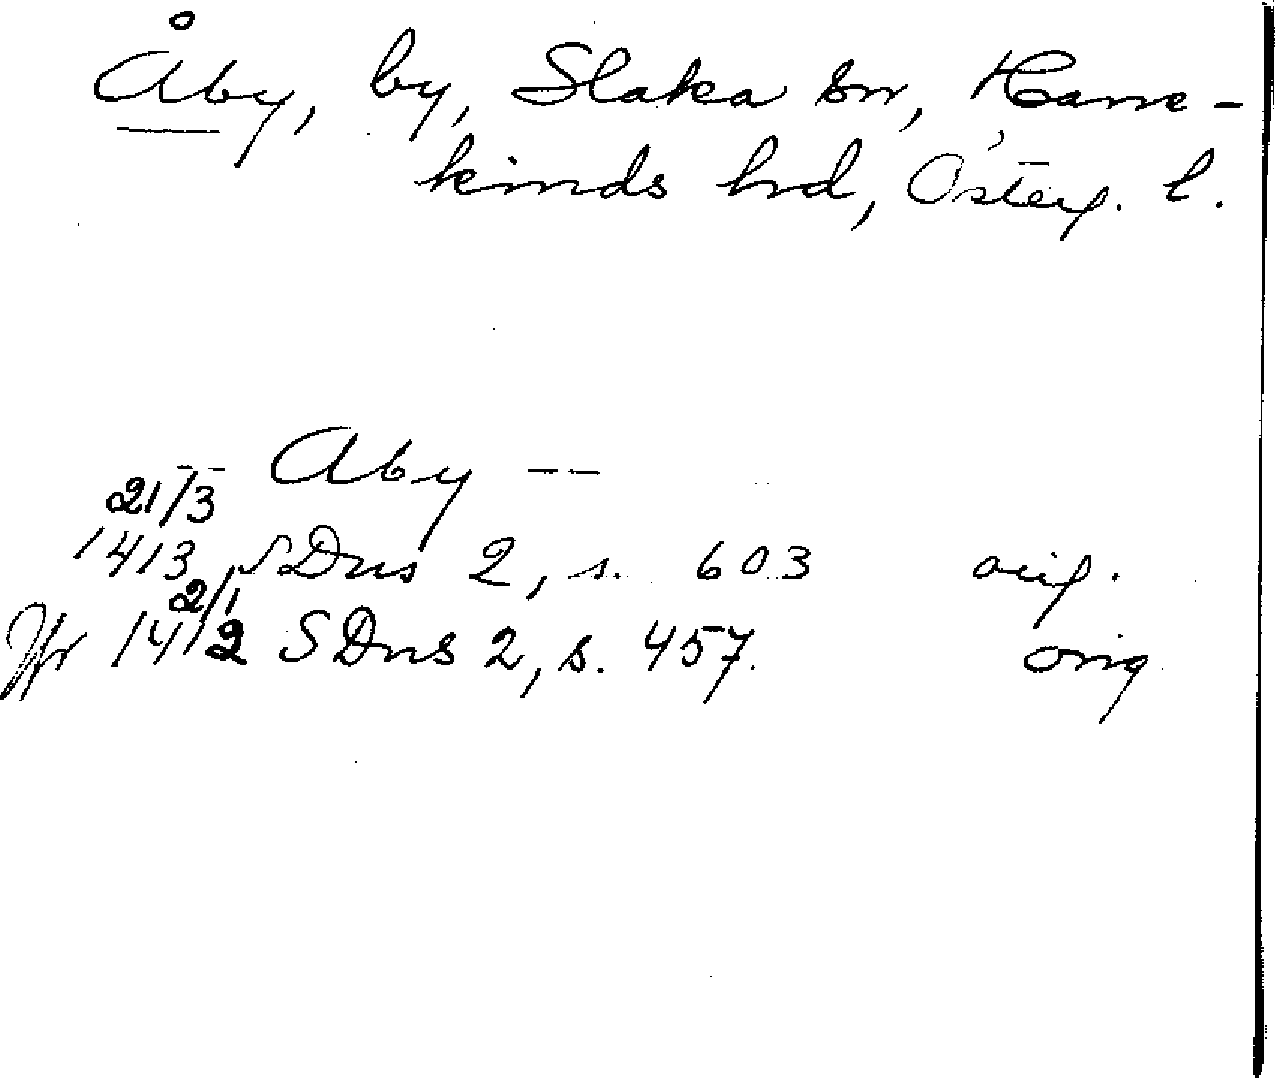 Åby, by, Slaka sn, Hane-
kinds hrd, Österg. l.
Aby --
21/3
1413 SDns 2, s. 603 orig.
2/1
Jfr 1412 SDns 2, s. 457. orig